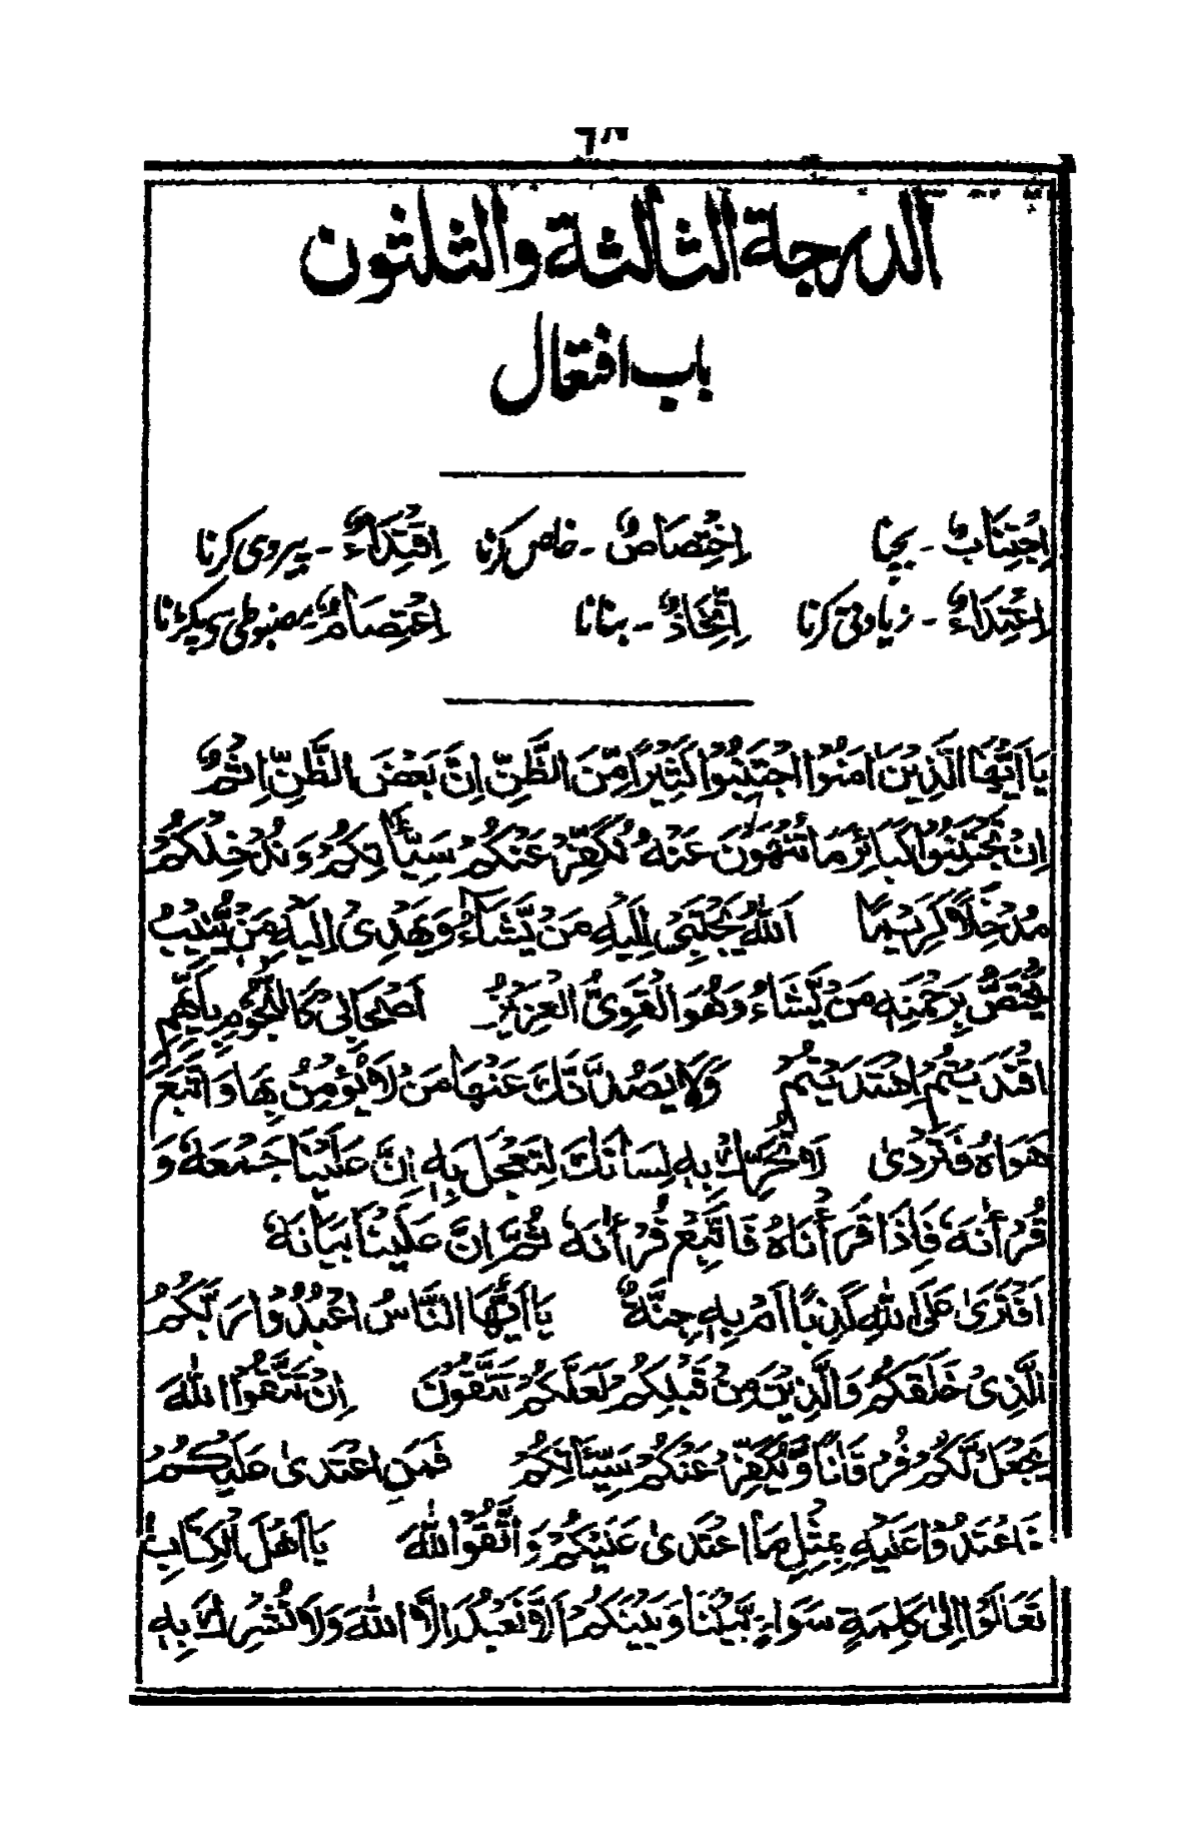 الدرجة الثالثة والثلثون
باب افتعال
اِجْتِنَابٌ - بچنا اِخْتِصَاصٌ - خاص کرنا اِقْتِدَاءٌ - پیروی کرنا
اِعْتِدَاءٌ - زیادتی کرنا اِتِّخَاذٌ - بنانا اِعْتِصَامٌ - مضبوطی سے پکڑنا
يَا اَيُّهَا الَّذِيْنَ اٰمَنُوا اجْتَنِبُوْا كَثِيْرًا مِّنَ الظَّنِّ اِنَّ بَعْضَ الظَّنِّ اِثْمٌ
اِنْ تَجْتَنِبُوْا كَبَائِرَ مَا تُنْهَوْنَ عَنْهُ نُكَفِّرْ عَنْكُمْ سَيِّأٰتِكُمْ وَنُدْخِلْكُمْ
مُدْخَلًا كَرِيْمًا اَللّٰهُ يَجْتَبِيْ اِلَيْهِ مَنْ يَّشَاءُ وَيَهْدِيْ اِلَيْهِ مَنْ يُّنِيْبُ
يَخْتَصُّ بِرَحْمَتِهٖ مَنْ يَّشَاءُ وَهُوَ الْقَوِيُّ الْعَزِيْزُ اَصْحَابِيْ كَالنُّجُوْمِ بِاَيِّهِمُ
اقْتَدَيْتُمْ اِهْتَدَيْتُمْ وَلَا يَصُدَّنَّكَ عَنْهَا مَنْ لَا يُؤْمِنُ بِهَا وَاتَّبَعَ
هَوَاهُ فَتَرْدٰى لَا تُحَرِّكْ بِهٖ لِسَانَكَ لِتَعْجَلَ بِهٖ اِنَّ عَلَيْنَا جَمْعَهٗ وَ
قُرْاٰنَهٗ فَاِذَا قَرَأْنَاهُ فَاتَّبِعْ قُرْاٰنَهٗ ثُمَّ اِنَّ عَلَيْنَا بَيَانَهٗ
اَفْتَرٰى عَلَى اللّٰهِ كَذِبًا اَمْ بِهٖ جِنَّةٌ يَا اَيُّهَا النَّاسُ اعْبُدُوْا رَبَّكُمُ
الَّذِيْ خَلَقَكُمْ وَالَّذِيْنَ مِنْ قَبْلِكُمْ لَعَلَّكُمْ تَتَّقُوْنَ اِنْ تَتَّقُوا اللّٰهَ
يَجْعَلْ لَّكُمْ فُرْقَانًا وَّيُكَفِّرْ عَنْكُمْ سَيِّئَاتِكُمْ فَمَنِ اعْتَدٰى عَلَيْكُمْ
فَاعْتَدُوْا عَلَيْهِ بِمِثْلِ مَا اعْتَدٰى عَلَيْكُمْ وَاتَّقُوْا اللّٰهَ يَا اَهْلَ الْكِتَابِ
تَعَالَوْا اِلٰى كَلِمَةٍ سَوَاءٍ بَيْنَنَا وَبَيْنَكُمْ اَلَّا نَعْبُدَ اِلَّا اللّٰهَ وَلَا نُشْرِكَ بِهٖ